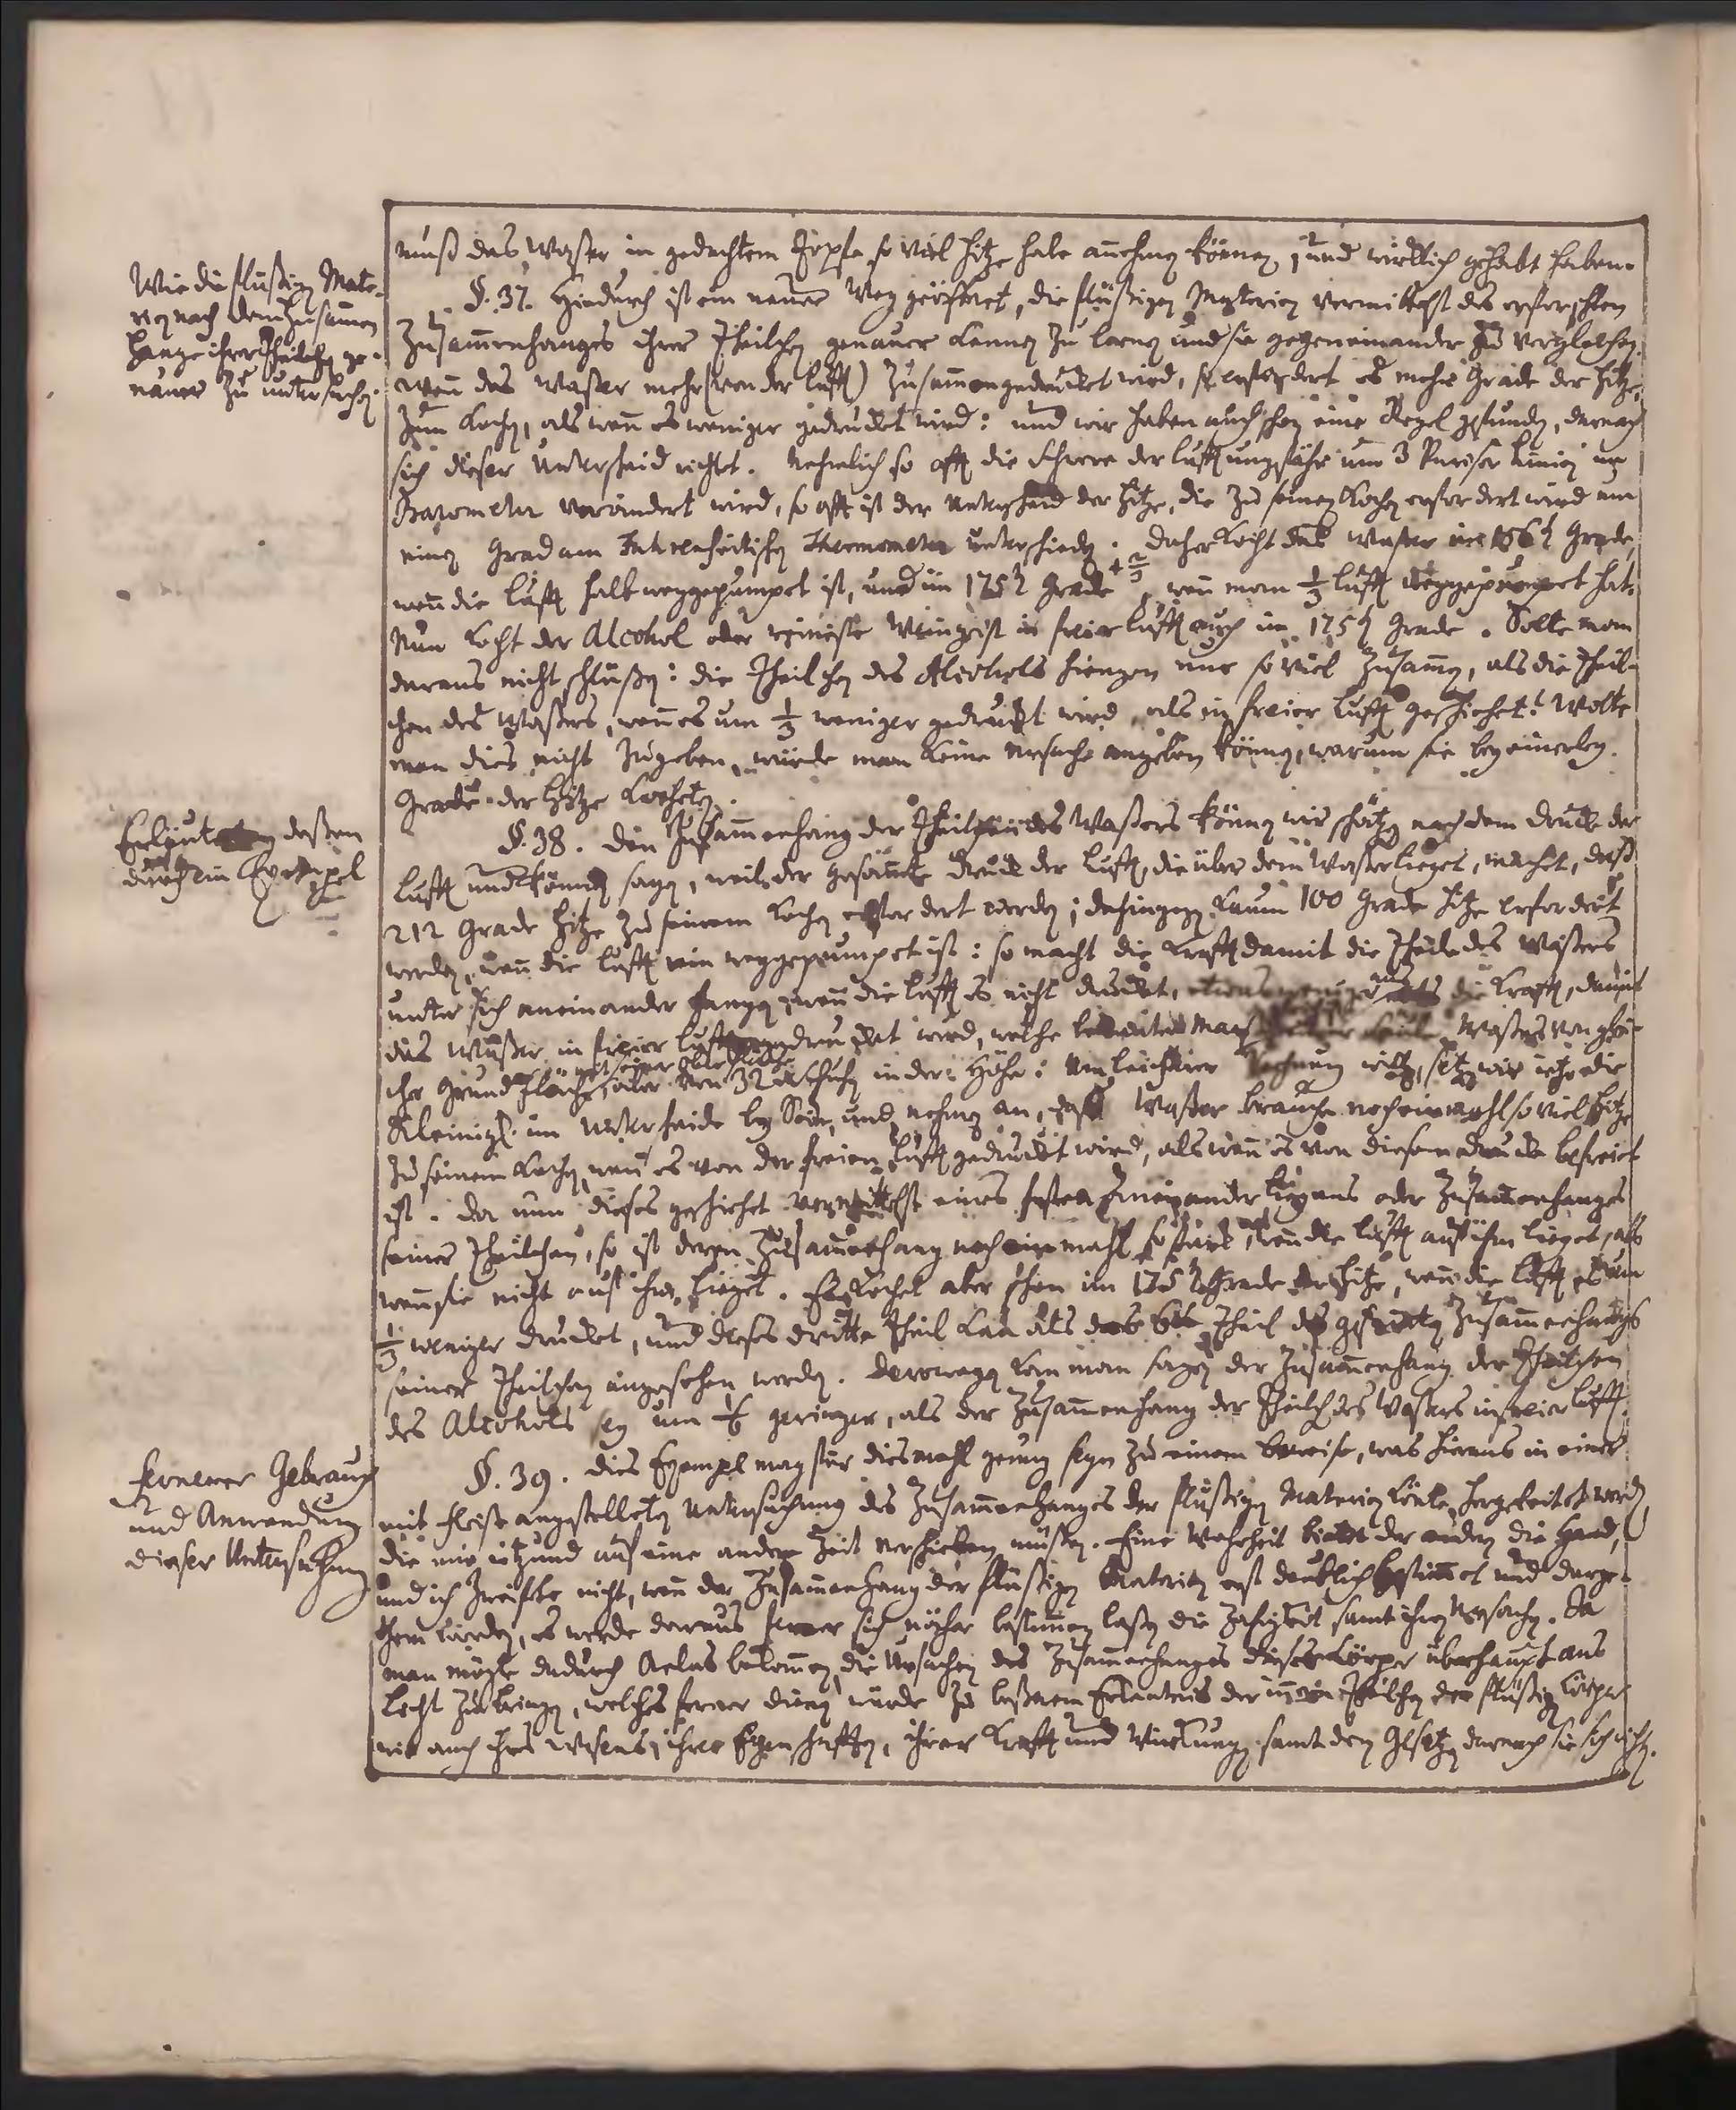 muß das Waßer in gedachtem Topfe so viel Hitze habe annehmen können, und wircklich gehabt haben.
Wie die flüßigen Mate-
rien nach dem Zusammen
hange ihrer Theilchen ge-
nauer zu untersuchen.
§. 37. Hiedurch ist ein neuer Weg geöffnet, die flüßigen Materien vermittelst des erforschten
Zusammenhanges ihrer Theilchen genauer kennen zu lernen und sie gegeneinander zu vergleichen.
Wenn das Waßer mehr (von der Luft) zusammengedruckt wird, so erfordert es mehr Grade der Hitze,
zum Kochen, als wenn es weniger gedruckt wird: und wir haben auch schon eine Regel gefunden, darnach
sich dieser Unterscheid richtet. Nehmlich so oft die Schwere der Luft ungefähr um 3 Pariser Linien im
Barometer verändert wird, so oft ist der Unterscheid der Hitze, die zu seinem Kochen erfordert wird um
einen Grad am Fahrenheitischen Thermometer unterschieden. Daher kocht das Waßer im 156½ Grade,
wenn die Luft halb weggepumpet ist, und im 175½ Grade + 2/3, wenn man 1/3 Luft weggepumpet hat.
Nun kocht der Alcohol oder reineste Weingeist in freier Luft auch im 175½ Grade. Solte man
daraus nicht schlüßen: die Theilchen des Alcohols hiengen nur so viel zusammen, als die Theil-
chen des Waßers, wenn es um 1/3 weniger gedruckt wird, als in freier Luft geschiehet? Wolte
man dies nicht zugeben, würde man keine Ursache angeben können, warum sie bey einerley
Grade der Hitze kocheten.
Erläuterung deßen
durch ein Exempel
§. 38. Den Zusammenhang der Theilchen des Waßers können wir schätzen nach dem Drucke der
Luft und können sagen, weil der gesamte Druck der Luft, die über dem Waßer lieget, machet, daß
212 Grade Hitze zu seinem Kochen erfordert werden; dahingegen kaum 100 Grade Hitze erfordert
werden, wenn die Luft rein weggepumpet ist: so macht die Kraft damit die Theile des Waßers
unter sich aneinander hangen, wenn die Luft es nicht drucket, etwas weniger aus als die Kraft, damit
das Waßer in freier Luft gedrucket wird, welche bedeutet Waßers von glei-
cher Grundfläche, mit seiner Oberfläche von 32 Schuhen in der Höhe: Um leichterer Rechnung willen, setzen wir itzo die
Kleinigk. im Unterscheide bey Seite, und nehmen an, daß Waßer brauche noch einmahl so viel Hitze
zu seinem Kochen, wenn es von der freien Luft gedruckt wird, als wenn es von diesem Drucke befreiet
ist. Da nun dieses geschiehet vermittelst eines festen Aneinander liegens oder Zusammenhanges
seiner Theilchen, so ist deren Zusammenhang noch einmahl so stark, wenn die Luft auf ihm lieget, als
wenn sie nicht auf ihm lieget. Es kochet aber schon im 175½ Grade der Hitze, wenn die Luft es um
1/3 weniger drucket, und dieses dritte Theil kan als das 6te Theil des gesamten Zusammenhangs
seiner Theilchen angesehen werden. Deswegen kan man sagen der Zusammenhang der Theilchen
des Alcohols sey um 1/6 geringer, als der Zusammenhang der Theilch. des Waßers in freier Luft.
fernerer Gebrauch
und Anwendung
dieser Untersuchung
§. 39. Dies Exempel mag für diesmahl genug seyn zu einem Beweise, was hieraus in einer
mit Fleiße angestelleten Untersuchung des Zusammenhanges der flüßigen Materien könte hergeleitet werden,
die wir itzund auf eine andere Zeit verschieben müßen. Eine Wahrheit bietet der andern die Hand,
und ich zweifele nicht, wenn der Zusammenhang der flüßigen Materien erst deutlich bestimmet und darge-
than würden, es werde daraus ferner sich näher bestimmen laßen die Zähigkeit samt ihren Ursachen. Ja
man mögte dadurch Anlas bekommen, die Ursachen des Zusammenhanges dieser Körper überhaupt ans
Licht zu bringen, welches ferner dienen würde zu beßerem Erkäntnis der innern Theilchen der flüßigen Körper
wie auch ihres Wesens, ihrer Eigenschaften, ihrer Kraft und Würkungen samt den Gesetzen darnach sie sich richten.